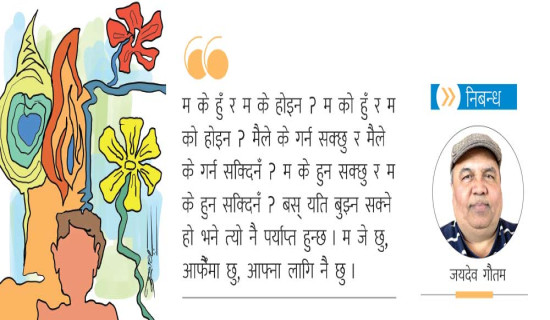 म के हुँ र म के होइन ? म को हुँ र म
को होइन ? मैले के गर्न सक्छु र मैले
के गर्न सक्दिनँ ? म के हुन सक्छु र म
के हुन सक्दिनँ ? बस् यति बुझ्न सक्ने
हो भने त्यो नै पर्याप्त हुन्छ । म जे छु,
आफैँमा छु, आफ्ना लागि नै छु ।
निबन्ध
जयदेव गौतम